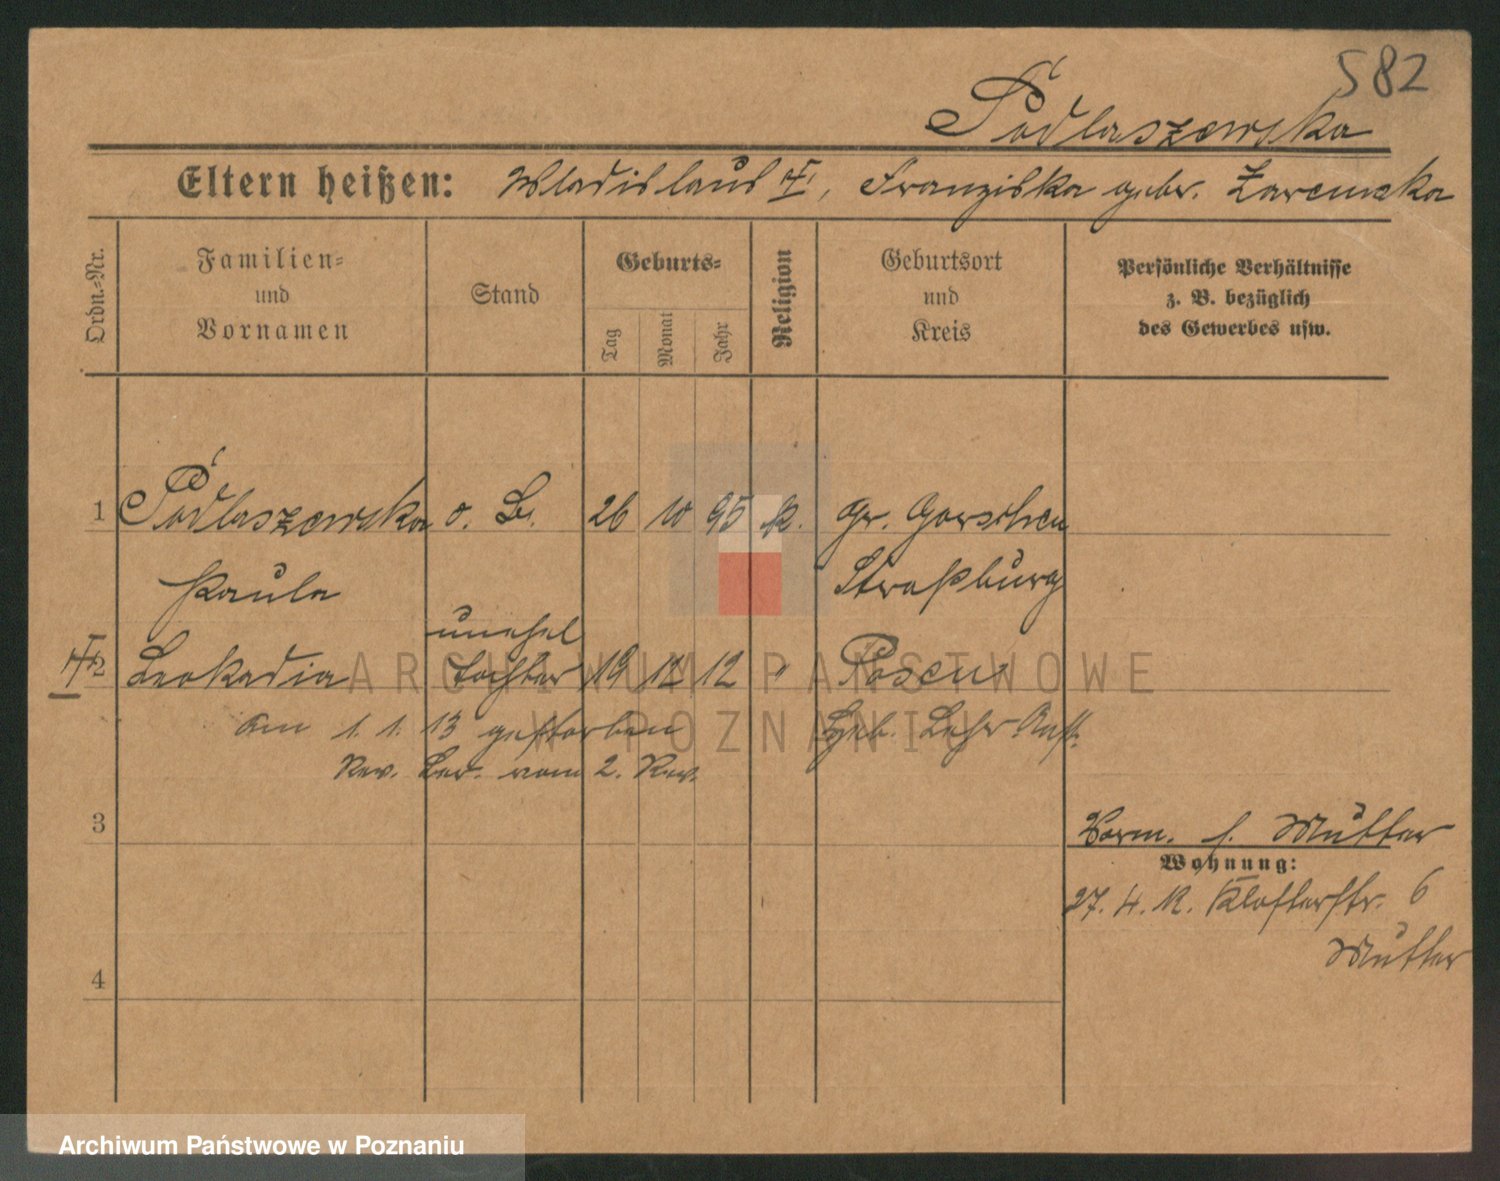 582
Podlaszewska
Eltern heißen: Wladislaus †, Franziska gebr. Zaremska
Ordn.-Nr.
Familien-
und
Vornamen
Stand
Geburts-
Tag
Monat
Jahr
Religion
Geburtsort
und
Kreis
Persönliche Verhältnisse
z. B. bezüglich
des Gewerbes usw.
1 Podlaszewska o. 26 10 95 k. Gr. Gorschen
Paula Straßburg
unehel
† 2 Leokadia Tochter 19 12 12 " Posen
am 1. 1. 13 gestorben Heb. Lehr-Anst.
Rev. Ber. vom 2. Rev.
3
Vorm. s. Mutter
Wohnung:
27. 4. Klosterstr. 6
Mutter
4
ARCHIWUM PAŃSTWOWE
W POZNANIU
Archiwum Państwowe w Poznaniu